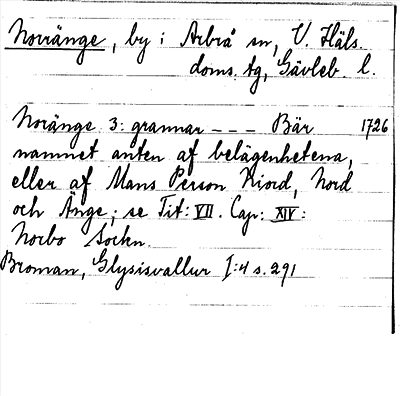 Norränge, by i Arbrå sn, V. Häls.
doms. tg, Gävleb. l.
Noränge 3: grannar - - - Bär 1726
namnet anten af belägenhetena,
eller af Mans Person Niord, Nord
och Änge; se Tit: VII. Cap: XIV:
Norbo Sockn.
Broman, Glysisvallur I:4 s. 291